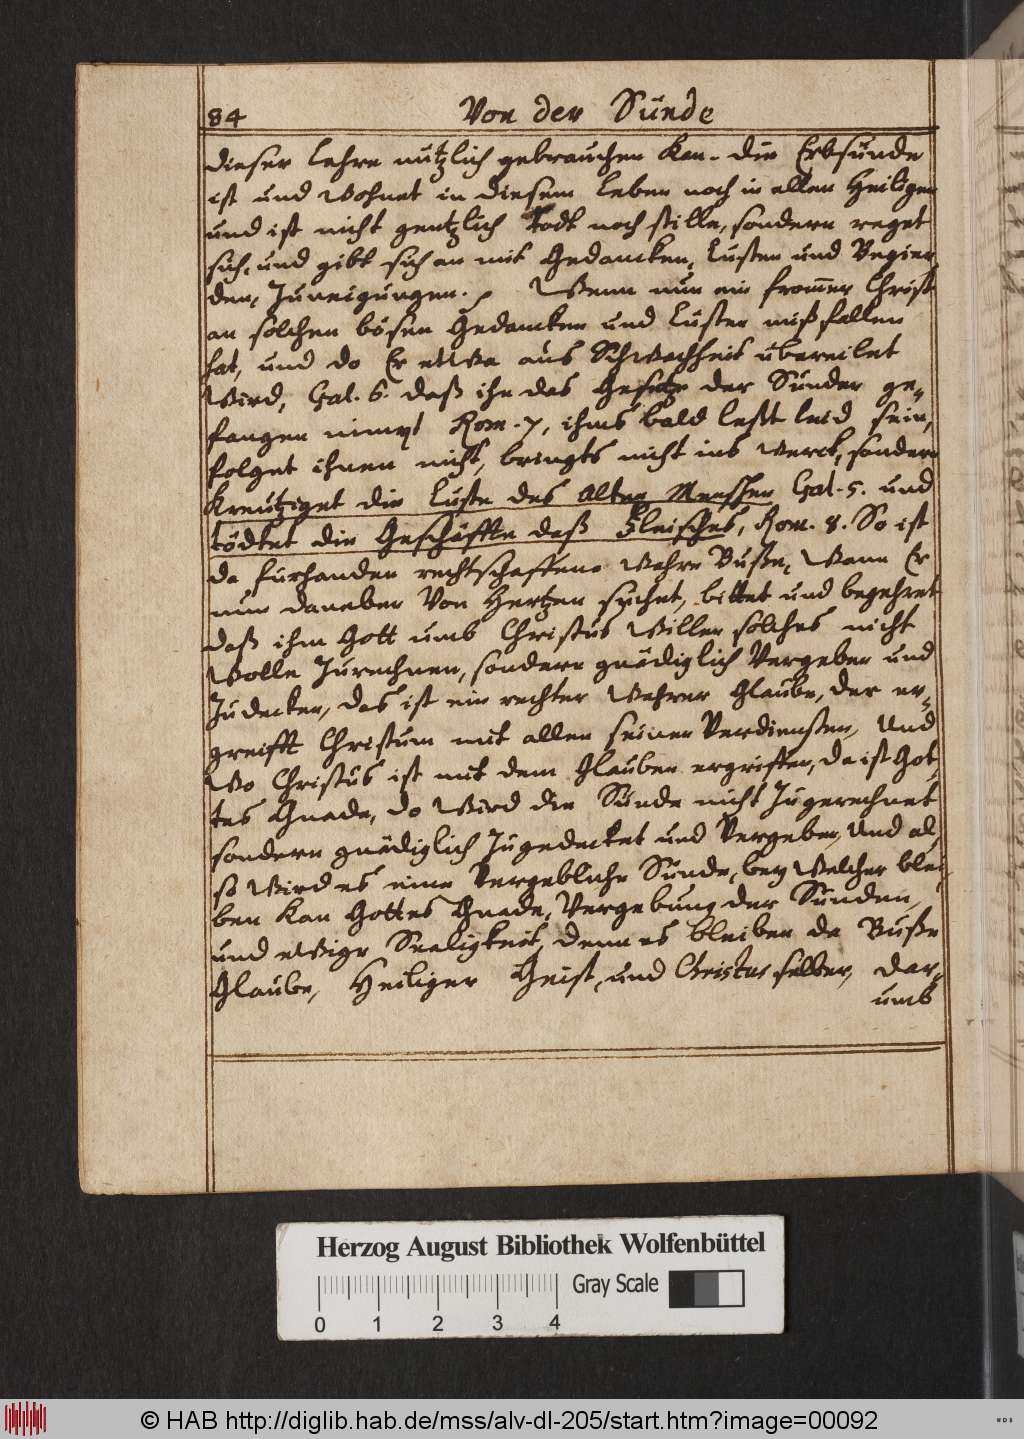 84 Von der Sünde
dieser Lehre nützlich gebrauchen Kan. die Erbsünde
ist und Wohnet in diesem Leben noch in allen Heiligen
und ist nicht gentzlich todt noch stille, sondern reget
sich, und gibt sich an mit Gedancken, Lusten und Begier
den, Zuneigungen. Wenn nun ein frommer Christ
an solchen bösen Gedancken und Lusten mißfallen
hat, und do Er etWa aus SchWachheit übereilet
Wird, Gal. 6. daß ihn das Gesetze der Sünden ge„
fangen nimpt Rom. 7, ihms bald leßt leid sein,
folget ihnen nicht, bringts nicht ins Werck, sondern
Kreutziget die Luste des Alten Menschen Gal. 5. und
tödtet die Geschäffte deß Fleisches, Rom. 8. So ist
da furhanden rechtschaffene Wahre Buße, Wann Er
nun daneben Von Hertzen suchet, bittet und begehret
daß ihm Gott umb Christus Willen solches nicht
Wolle Zurechnen, sondern gnädiglich Vergeben und
Zudecken, das ist ein rechter Wahrer Glaube, der er„
greifft Christum mit allen seinen Verdiensten, Und
Wo Christus ist mit dem Glauben ergriffen, da ist Got
tes Gnade, do Wird die Sünde nicht Zugerechnet
sondern gnädiglich Zugedecket und Vergeben, Und al
so Wird es eine Vergebliche Sünde, bey Welcher blei
ben Kan Gottes Gnade, Vergebung der Sünden,
und eWige Seeligkeit, denn es bleiben da Buße
Glaube, Heiliger Geist, und Christus selber, dar„
umb
Herzog August Bibliothek Wolfenbüttel
Gray Scale
0 1 2 3 4
© HAB http://diglib.hab.de/mss/alv-dl-205/start.htm?image=00092